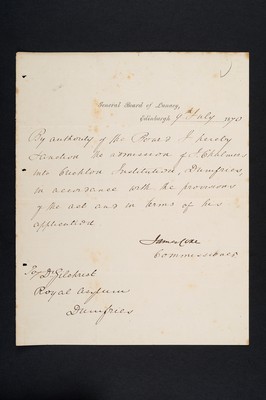 General Board of Lunacy,
Edinburgh, 9th July 1870
By authority of the Board I hereby
Sanction the admission of J. Chalmers
into Crichton Institution, Dumfries,
in accordance with the provisions
of the act and in terms of his
application
James Coxe
Commissioner
Dr Gilchrist
Royal Asylum
Dumfries